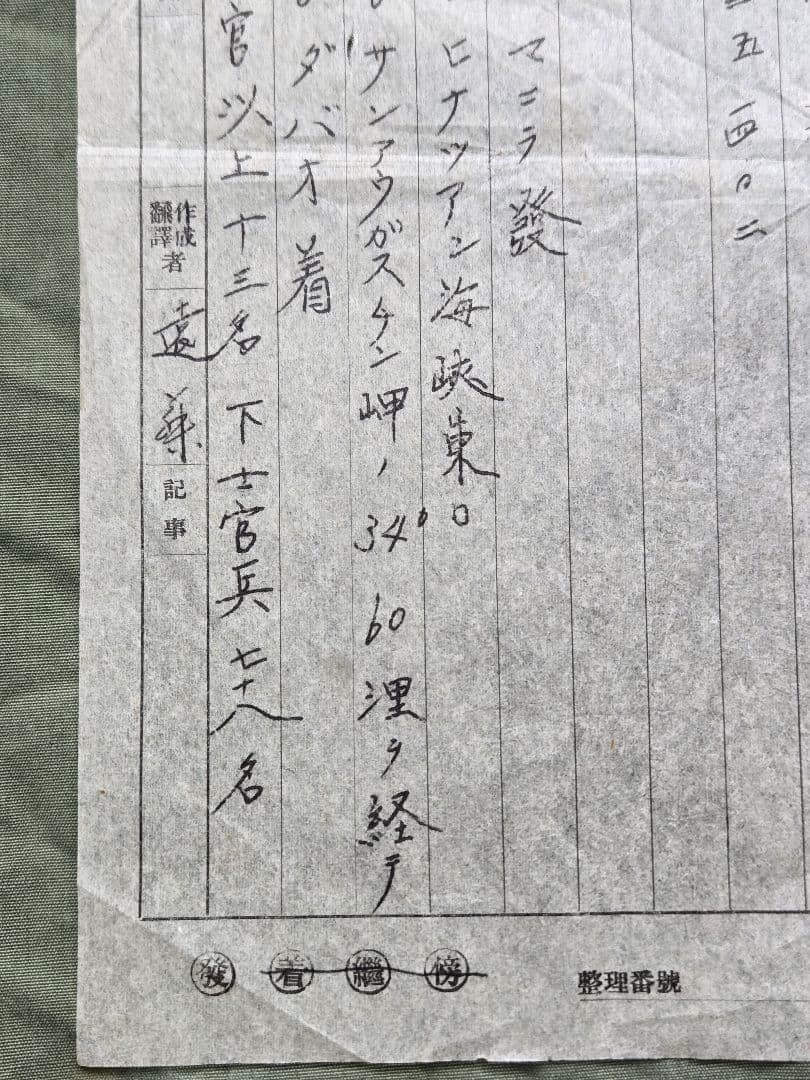 五 四〇二
マニラ 發
ヒナツアン海峡東口
サンアウガスチン岬ノ 34° 60 浬ヲ経テ
ダバオ 着
官以上十三名 下士官兵 七十八名
作成
飜譯者
記事
發 着 繼 傍
整理番號